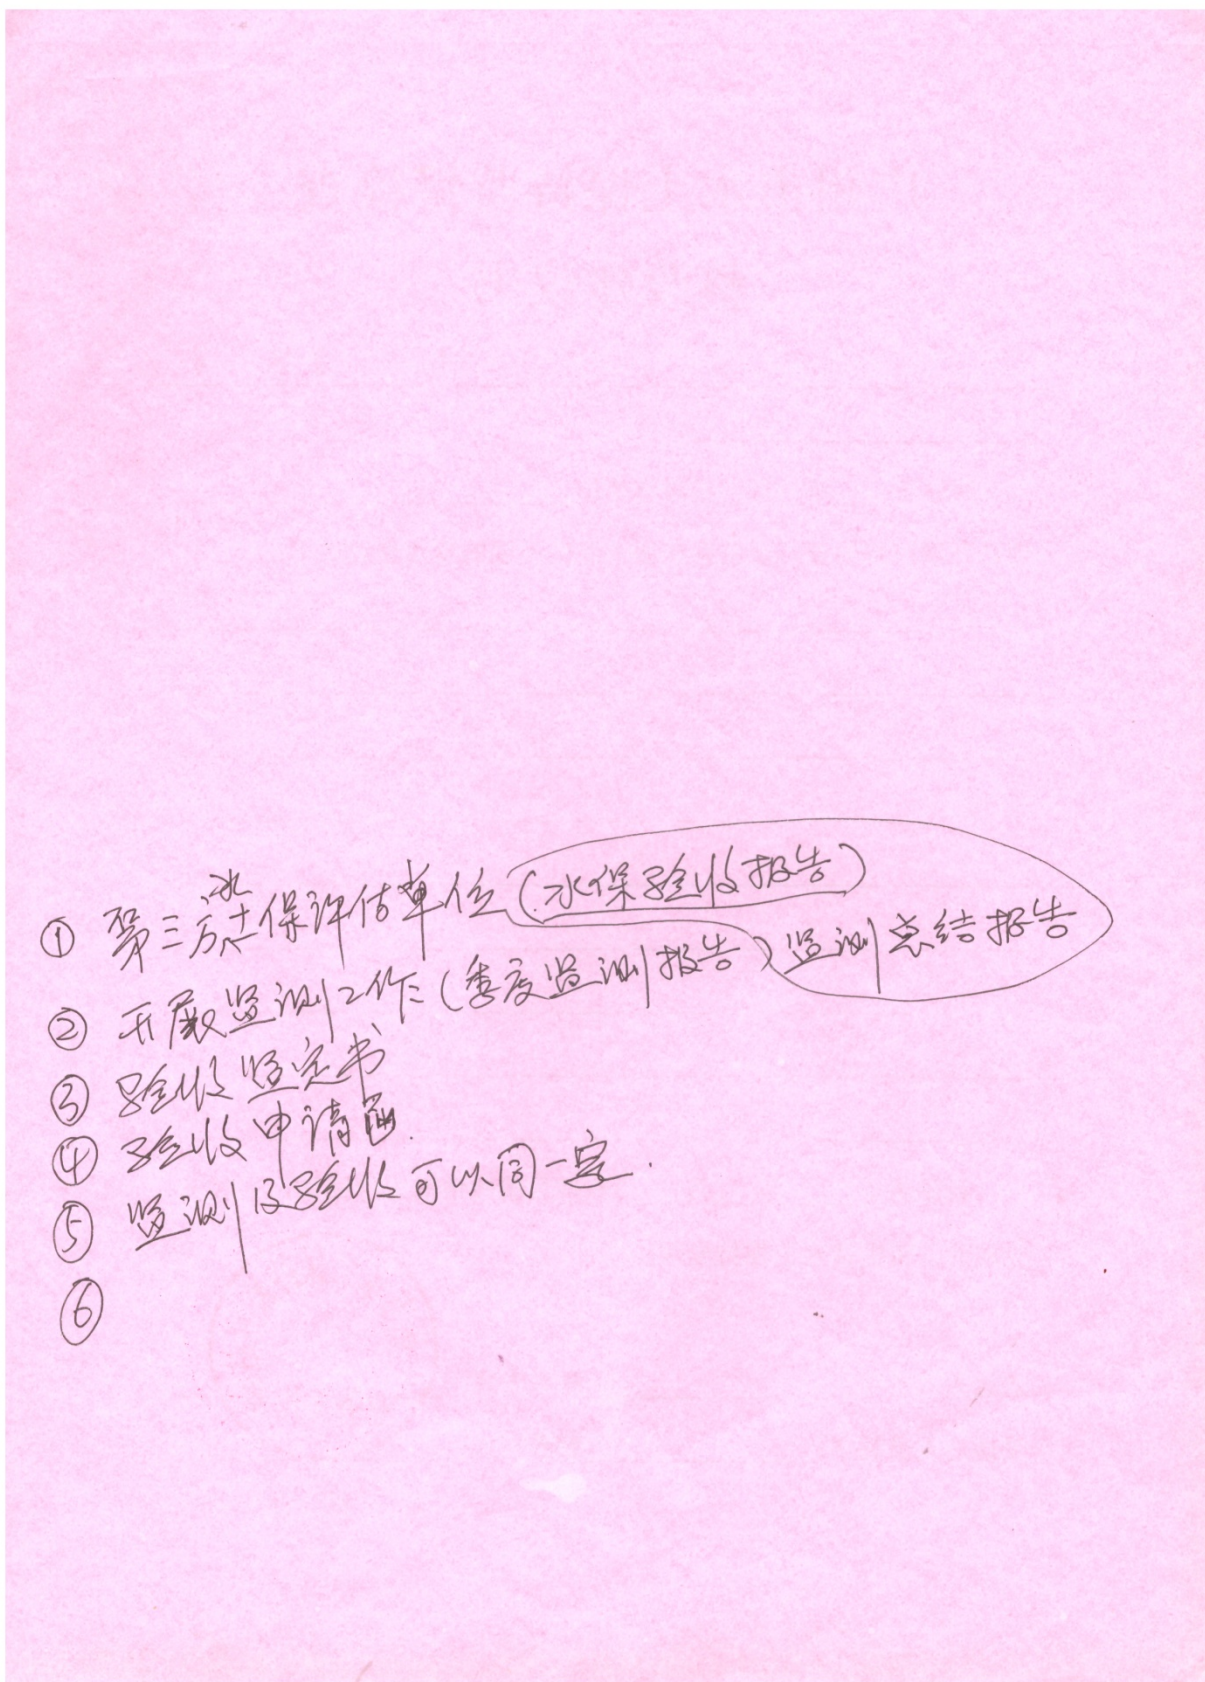 ① 第三方水保评估单位(水保验收报告)
② 开展监测工作(季度监测报告)监测总结报告
③ 验收鉴定书
④ 验收申请函.
⑤ 监测及验收可以同一家.
⑥